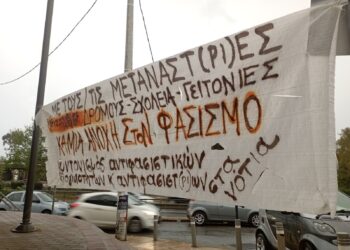 ΜΕ ΤΟΥΣ/ΤΙΣ ΜΕΤΑΝΑΣΤ(ΡΙ)ΕΣ
ΔΡΟΜΟΥΣ-ΣΧΟΛΕΙΑ-ΓΕΙΤΟΝΙΕΣ
ΚΑΜΙΑ ΑΝΟΧΗ ΣΤΟΝ ΦΑΣΙΣΜΟ
συντονισμός αντιφασιστικών
κ αντιφασιστ(ρι)ών στα
νότια